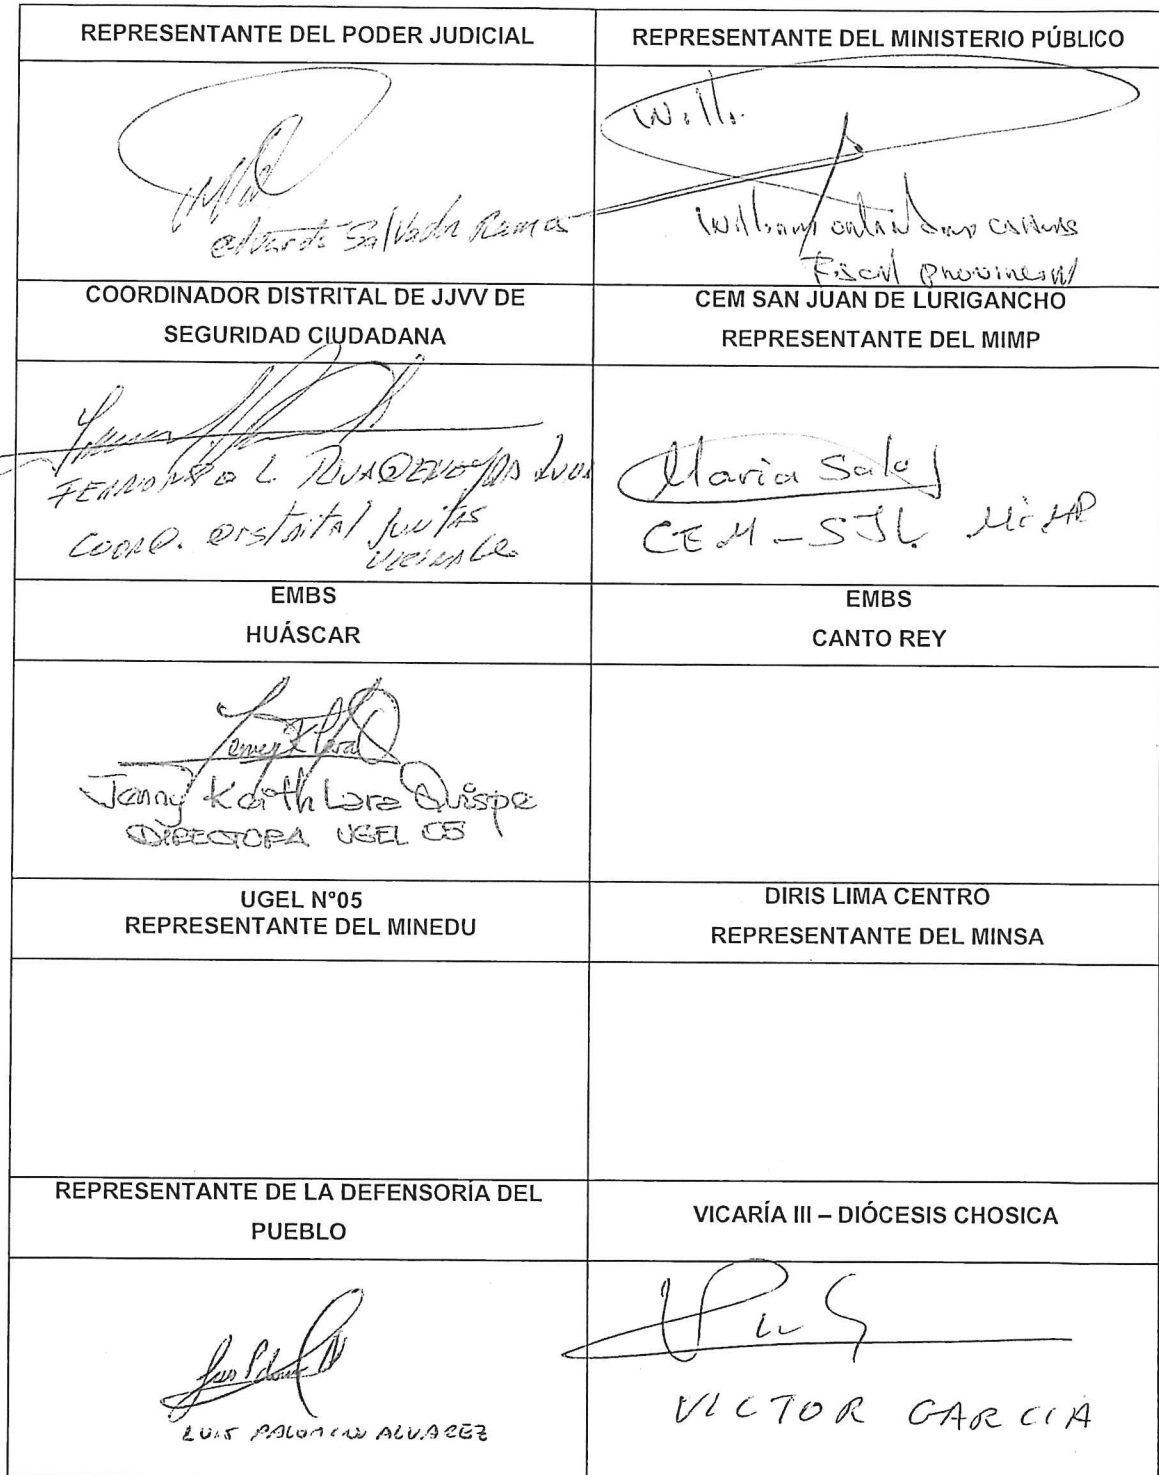 REPRESENTANTE DEL PODER JUDICIAL
REPRESENTANTE DEL MINISTERIO PÚBLICO
Eduardo Salvador Ramos
Will.
William
Fiscal Provincial
COORDINADOR DISTRITAL DE JJVV DE
SEGURIDAD CIUDADANA
CEM SAN JUAN DE LURIGANCHO
REPRESENTANTE DEL MIMP
FERNANDO L.
COORD. DISTRITAL JUNTAS
VECINALES
Maria Salas
CEM - SJL MIMP
EMBS
HUÁSCAR
EMBS
CANTO REY
Jenny Karith Lara Quispe
DIRECTORA UGEL 05
UGEL Nº05
REPRESENTANTE DEL MINEDU
DIRIS LIMA CENTRO
REPRESENTANTE DEL MINSA
REPRESENTANTE DE LA DEFENSORÍA DEL
PUEBLO
VICARÍA III – DIÓCESIS CHOSICA
LUIS PALOMINO ALVAREZ
VICTOR GARCIA